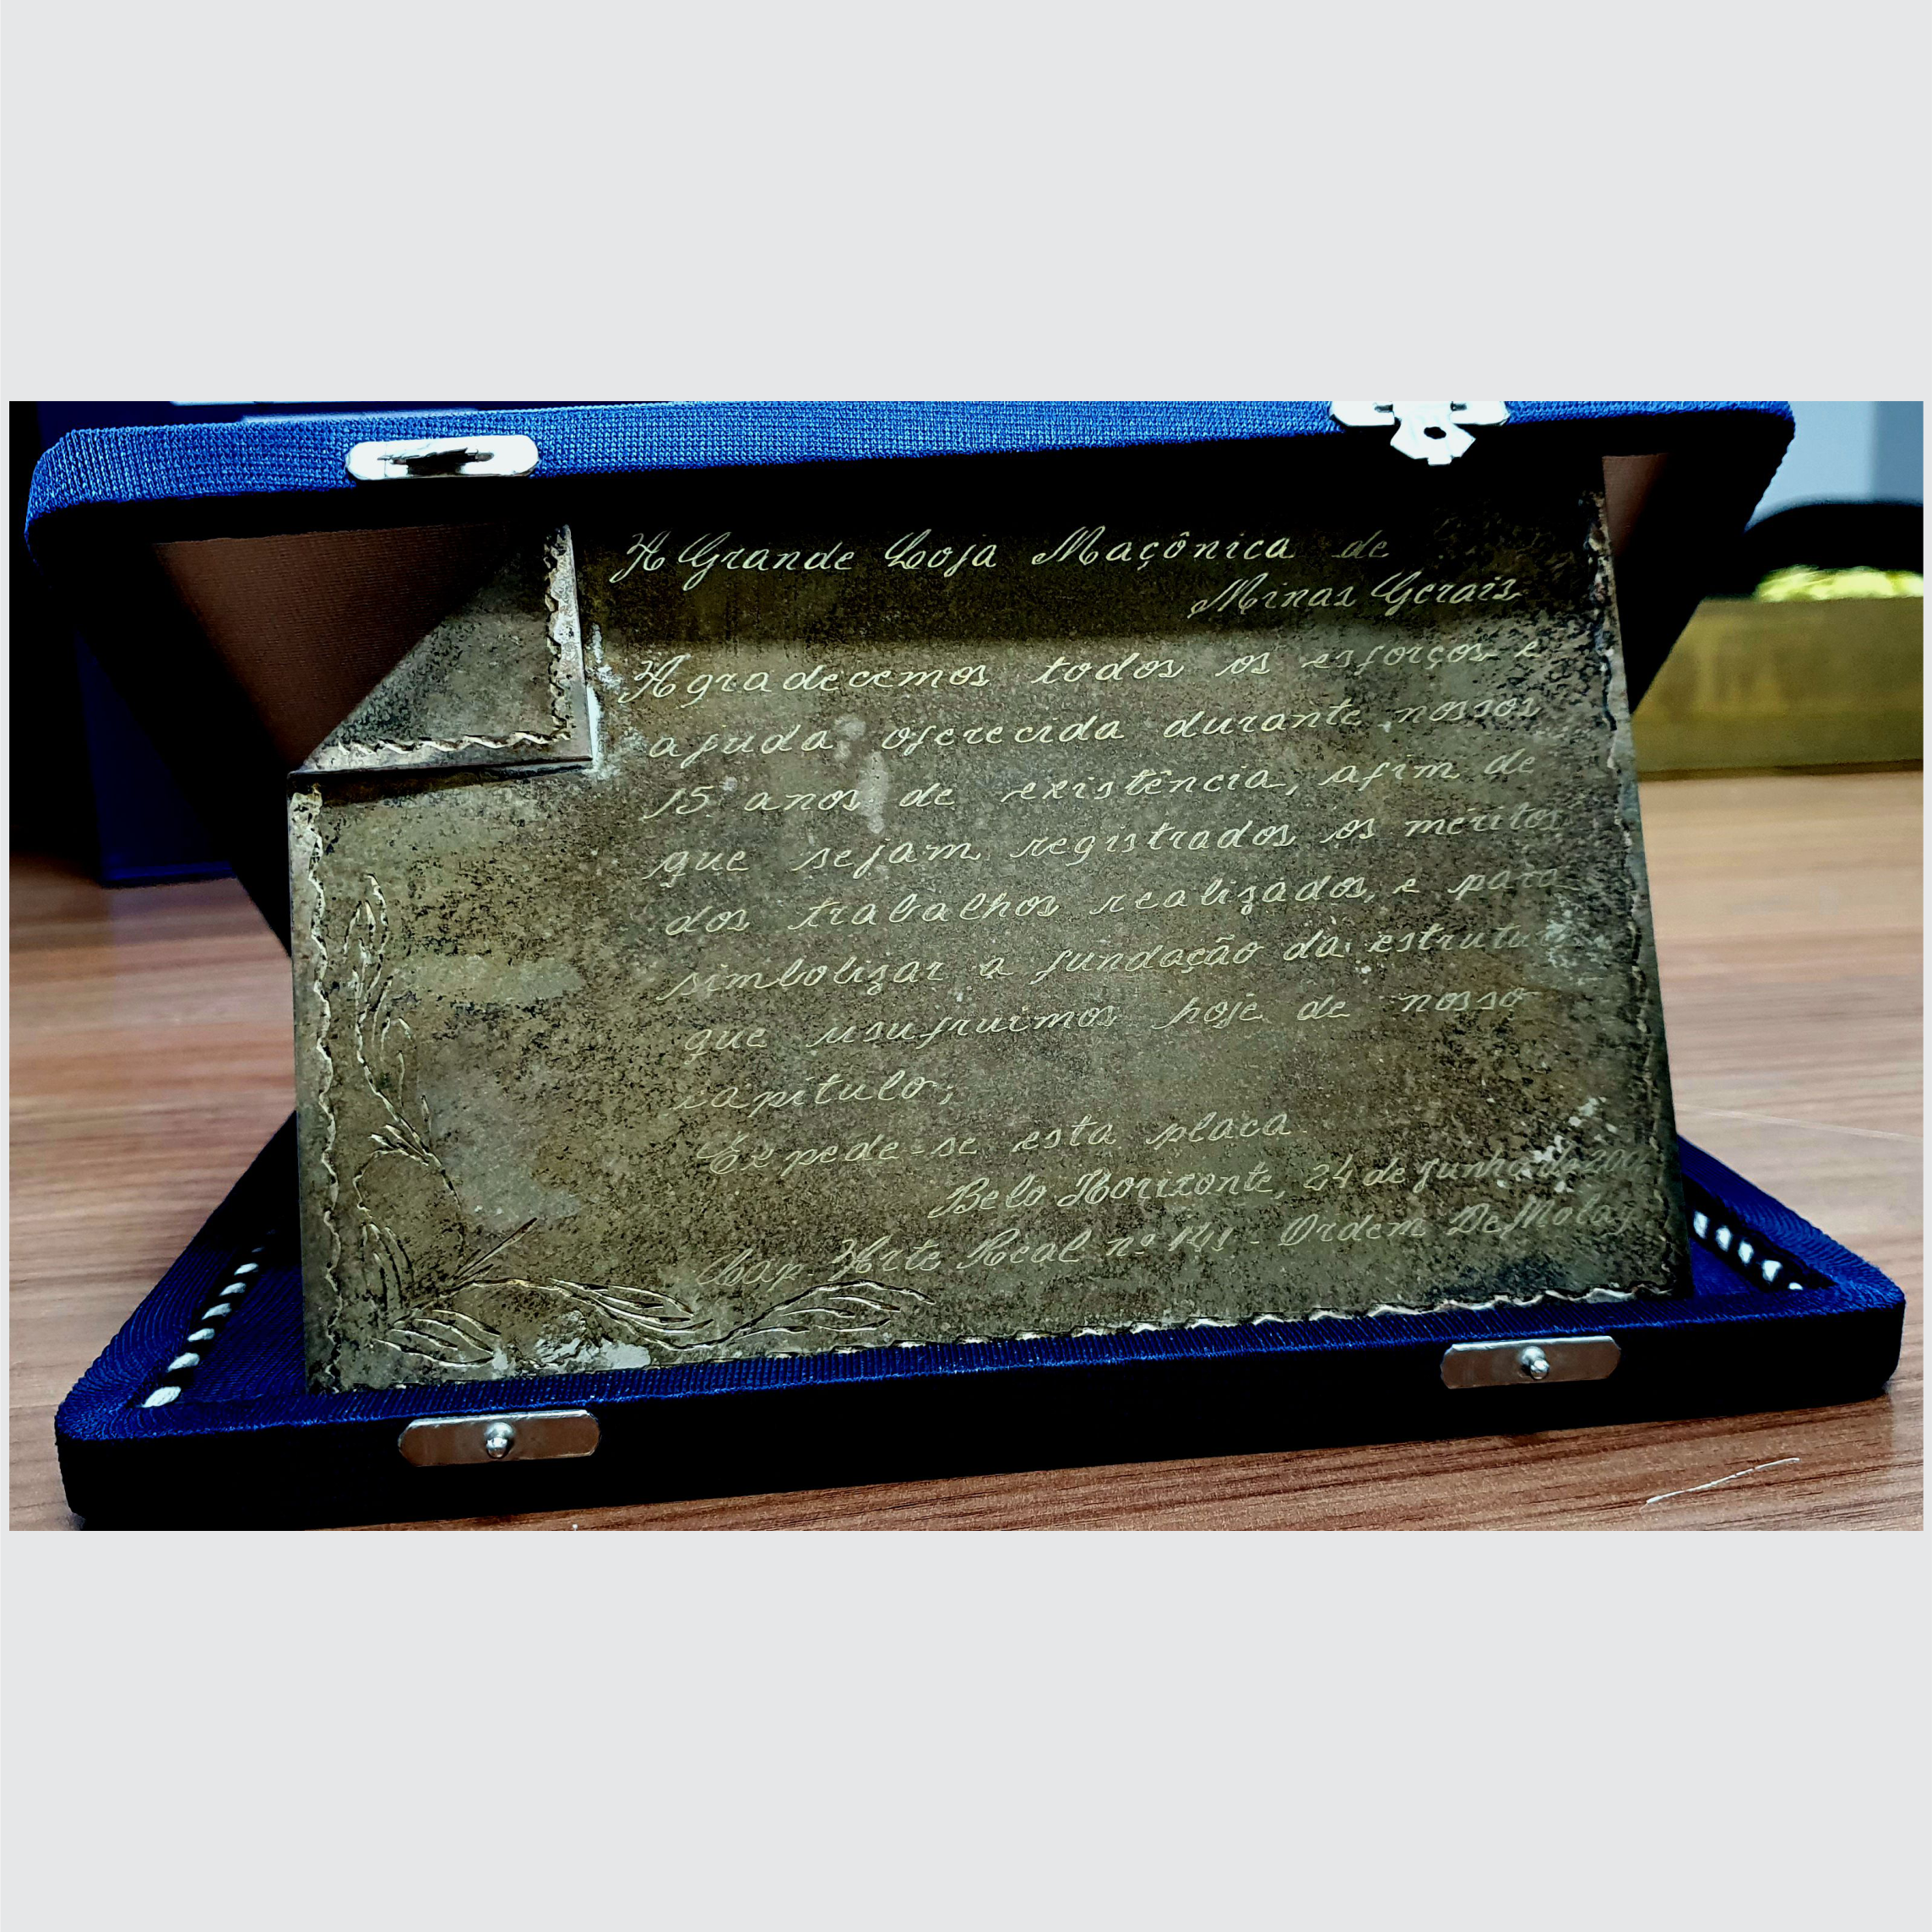 A Grande Loja Maçônica de
Minas Gerais
Agradecemos todos os esforços e
ajuda oferecida durante nossos
15 anos de existência, afim de
que sejam registrados os méritos
dos trabalhos realizados, e para
simbolizar a fundação da estrutura
que usufruimos hoje de nosso
capítulo;
Expede-se esta placa
Belo Horizonte, 24 de Junho de
Cap. Arte Real nº 141 - Ordem DeMolay